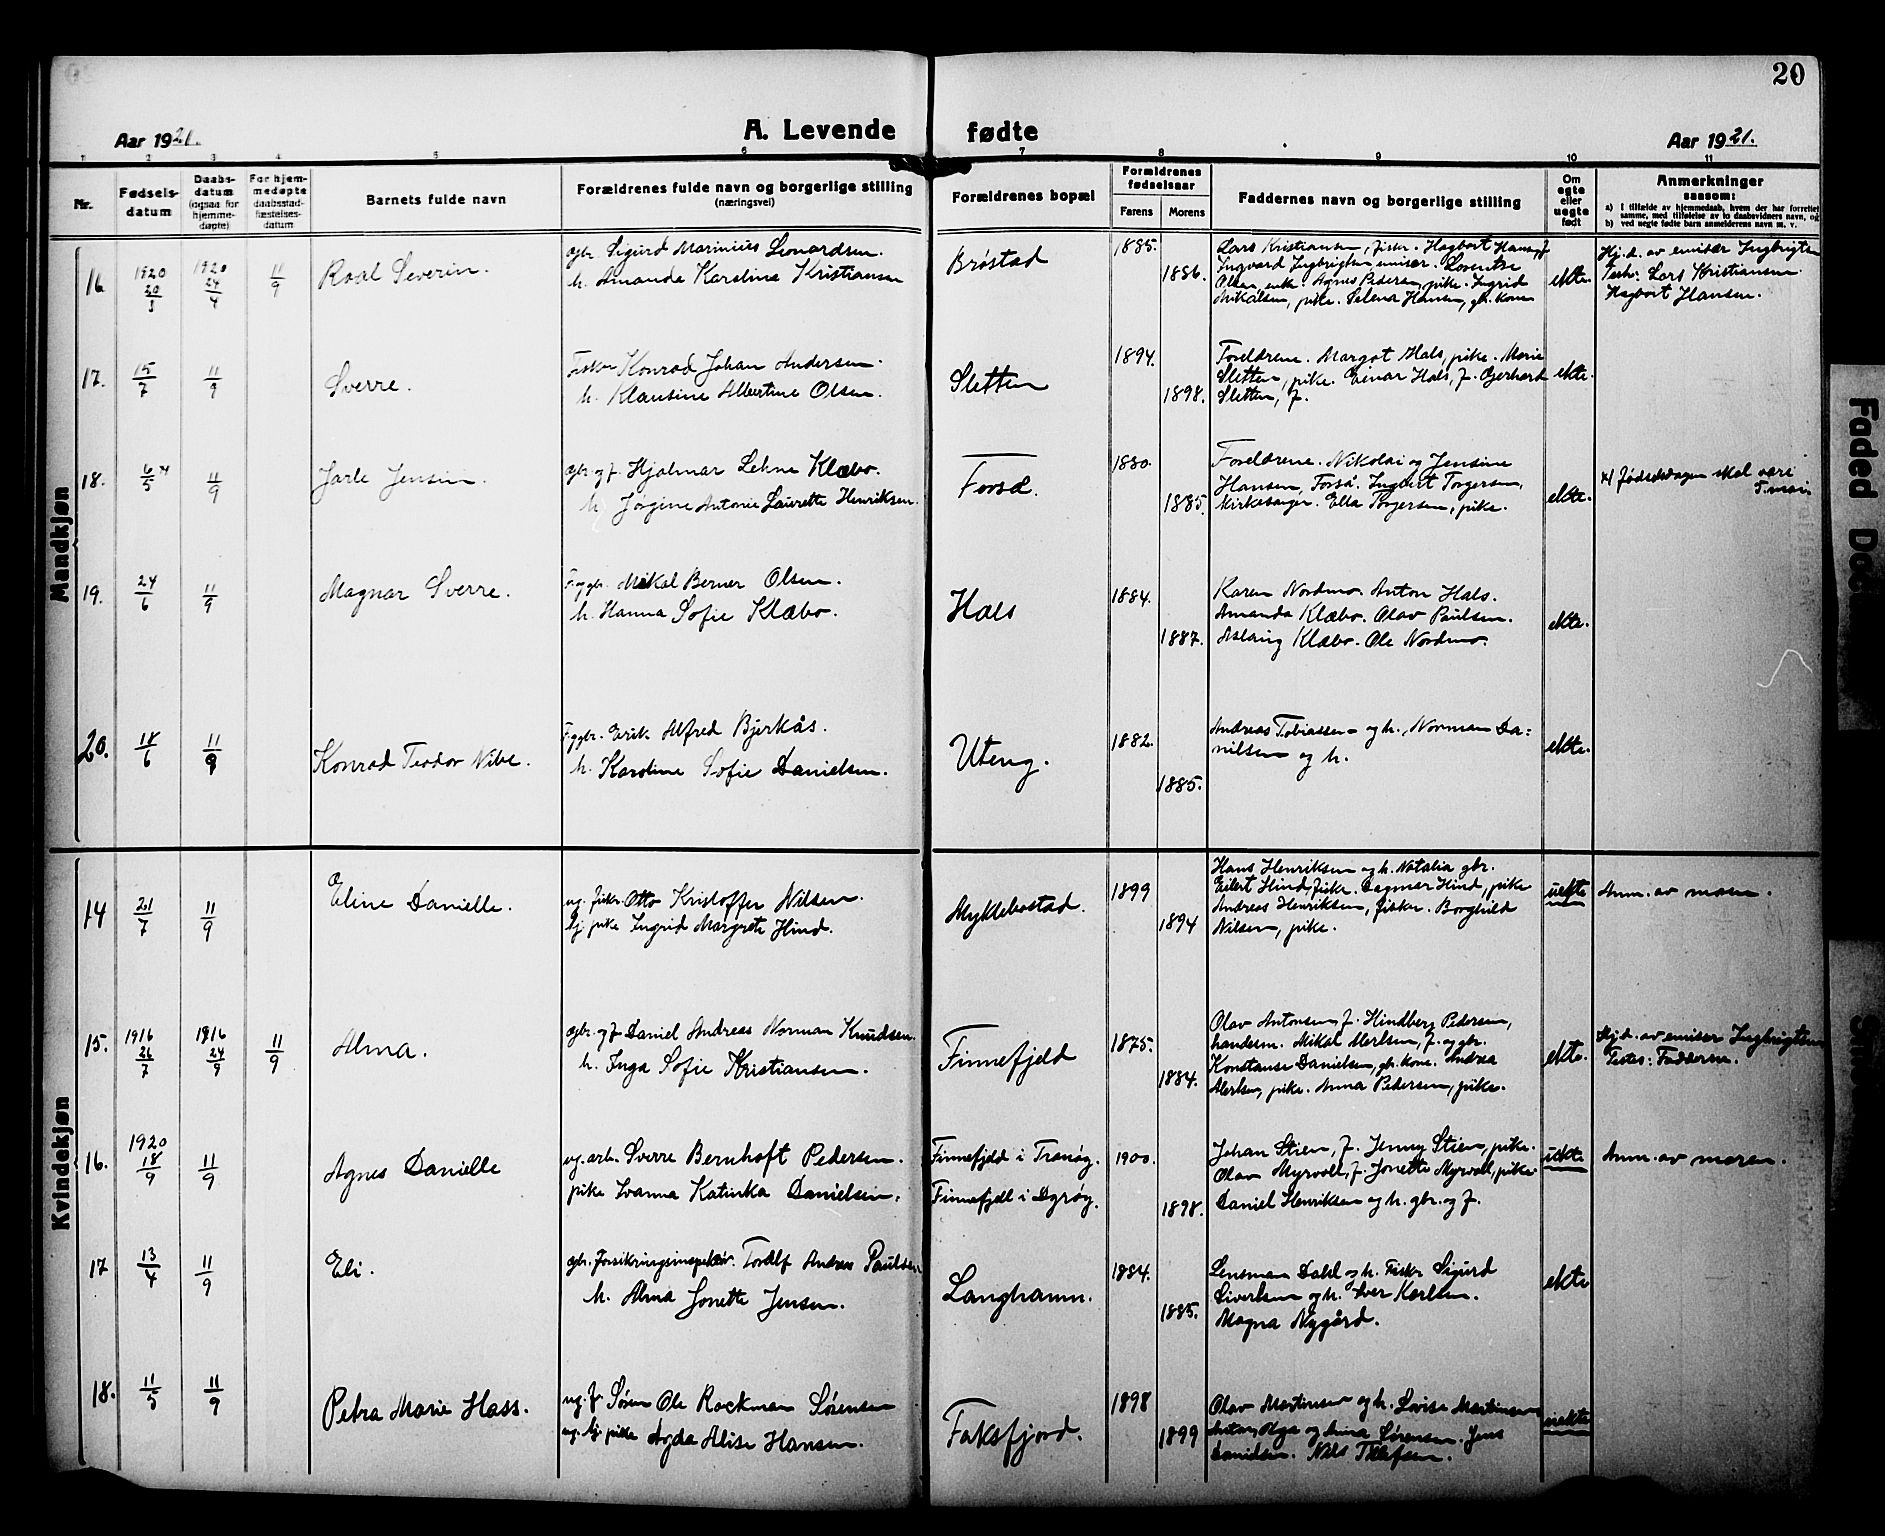 20
Aar 1921.
A. Levende fødte
Aar 1921.
1 2 3 4 5 6 7 8 9 10 11
Nr.
Fødsels-
datum
Daabs-
datum
(ogsaa for
hjemme-
døpte)
For hjem-
medøpte
daabsstad-
fæstelses-
datum
Barnets fulde navn
Forældrenes fulde navn og borgerlige stilling
(næringsvei)
Forældrenes bopæl
Forældrenes
fødselsaar
Farens
Morens
Faddernes navn og borgerlige stilling
Om
egte
eller
uegte
født
Anmerkninger
saasom:
a) I tilfælde av hjemmedaab, hvem der har forrettet
samme, med tilføielse av to daabsvidners navn, og
b) ved uegte fødte barn anmelderens navn m. v.
Mandkjøn
16. 1920 20/3 1920 24/4 11/9
Roal Severin.
gbr. Sigurd Marinius Leonardsen.
h. Amanda Karolina Kristiansen
Brøstad
1885.
1886.
Lars Kristiansen, fisker. Hagbart Hansen, f
Ingvard Ingbrigtsen emisær. Lorentse
Olsen, enke. Agnes Pedersen, pike. Ingrid
Mikalsen, pike. Salena Hansen, gb. kone
ekte.
Hj.d. av emisær Ingbrigtsen
Testes: Lars Kristiansen
Hagbart Hansen.
17. 15/7 11/9
Sverre.
Fisker Konrad Johan Andersen.
h. Klausine Albertine Olsen.
Sletten
1894.
1898.
Foreldrene. Margot Hals, pike. Marie
Sletten, pike. Einar Hals, f. Gerhard
Sletten, f.
ekte.
18. 6/5 x) 11/9
Jarle Jensin.
gbr. og f. Hjalmar Lehne Klæbo.
h. Jørgine Antonie Laurette Henriksen.
Forså.
1880.
1885.
Foreldrene. Nikolai og Jensine
Hansen, Forså. Ingbert Torgersen,
kirkesanger. Ella Torgersen, pike.
ekte.
x) Fødselsdagen skal være
7. mai
19. 24/6 11/9
Magnar Sverre.
F. og gbr. Mikal Berner Olsen.
h. Hanna Sofie Klæbo.
Hals
1884.
1887.
Karen Nordmo. Anton Hals.
Amanda Klæbo. Olav Paulsen.
Aslaug Klæbo. Ole Nordmo.
ekte.
20. 18/6 11/9
Konrad Teodor Nibe.
F. og gbr. Erik Alfred Bjerkås.
h. Karoline Sofie Danielsen.
Uteng.
1882.
1885.
Andreas Tobiassen og h., Norman Da=
nilsen og h.
ekte.
Kvindekjøn
14 21/7 11/9
Eline Danielle.
ug. fisker Otto Kristoffer Nilsen.
tj. pike Ingrid Margrete Hind.
Myklebostad.
1899
1894
Hans Henriksen og h. Natalia gbr.
Eilert Hind, fisker. Dagmar Hind, pike
Andreas Henriksen, fisker. Borghild
Nilsen, pike.
uekte
Anm. av moren.
15. 1916 26/7 1916 24/9 11/9
Alma.
gbr. og f Daniel Andreas Norman Knudsen.
h. Inga Sofie Kristiansen.
Finnefjeld
1875.
1884.
Olav Antonsen, f. Hindberg Pedersen,
handelsm. Mikal Merlsen, f. og gbr.
Konstanse Danielsen, gb. kone. Andrea
Merlsen, pike. Anna Pedersen, pike.
ekte.
Hjd. av emisær Ingbrigtsen
Testes: Fadderne.
16. 1920 18/9 11/9
Agnes Danielle
ug. arb. Sverre Bernhoft Pedersen.
pike Ivanna Katinka Danielsen.
Finnefjeld i Tranøy.
Finnefjell i Dyrøy.
1900.
1898.
Johan Stien, f. Jenny Stien, pike.
Olav Myrvoll, f. Jonette Myrvoll, pike
Daniel Henriksen og h. gbr. og f.
uekte
Anm. av moren.
17 13/4 11/9
Eli.
gbr. forsikringsinspektør. Toralf Andreas Paulsen
h. Alma Jonette Jensen.
Langhamn.
1884.
1885.
Lensman Dahl og h. Fisker Sigurd
Sivertsen og h. Iver Karlsen.
Magna Nygård.
ekte
18. 11/5 11/9
Petra Marie Hass.
ug. f. Søren Ole Rockman Sørensen
ug. tj. pike Agda Alise Hansen.
Faksfjord.
1898
1899
Olav Martinsen og h. Lovise Martinsen
og Anna Sørensen. Jens
Danielsen. Nils Tellefsen.
uekte
Faded Doc